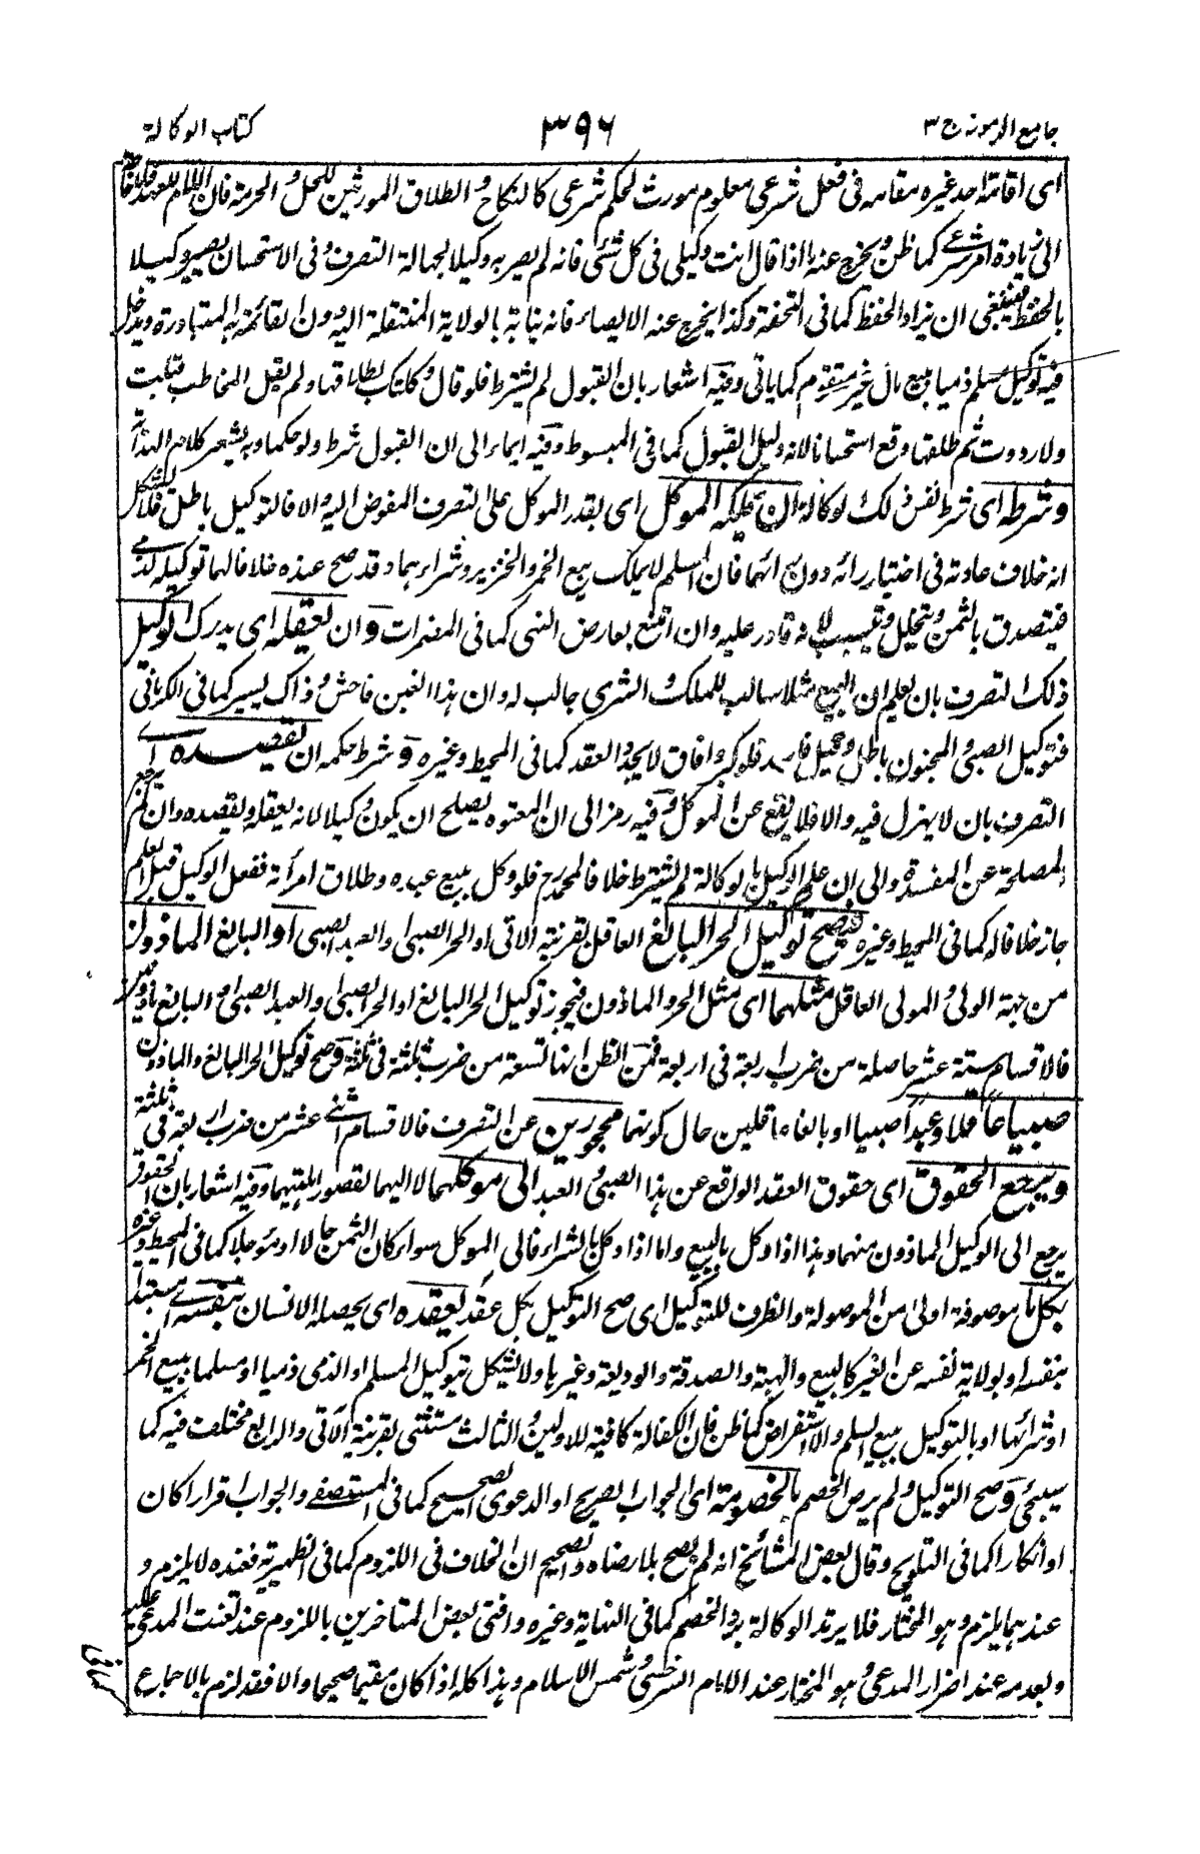 جامع الرموز ج ٣
٣٩٦
كتاب الوكالة
اى اقامة احد غيره مقامه فى فعل شرعى معلوم مورث لحكم شرعى كالنكاح والطلاق المورثين للحل والحرمة فان اللام للعهد فلا حاجة
الى زيادة امر شرعى كما ظن ويخرج عنه ما اذا قال انت وكيلى فى كل شئ فانه لم يصر به وكيلا لجهالة التصرف وفى الاستحسان يصير وكيلا
بالحفظ فينبغى ان يزاد الحفظ كما فى التحفة وكذا يخرج عنه الايصاء فانه نيابة بالولاية المنتقلة اليه دون القائمة به المتبادرة ويدخل
فيه توكيل مسلم ذميا ببيع مال غير متقوم كما ياتى وفيه اشعار بان القبول لم يشترط فلو قال وكلتك بطلاقها ولم يقل المخاطب قبلت
ولا رددت ثم طلقها وقع استحسانا لانه دليل القبول كما فى المبسوط وفيه ايماء الى ان القبول شرط ولو حكما وبه يشعر كلام الهداية
وشرطه اى شرط نفس ذلك لوكالة ان يملكه الموكل اى يقدر الموكل على التصرف المفوض اليه والا فالتوكيل باطل فلا يشكل
انه خلاف عادته فى اختيار رائه دون رائهما فان المسلم لا يملك بيع الخمر والخنزير وشراءهما وقد صح عنده خلافا لهما توكيله لذمى
فيتصدق بالثمن ويتخلل ويسيب لانه قادر عليه وان امتنع بعارض النهى كما فى المضمرات وان يعقله اى يدرك الوكيل
ذلك التصرف بان يعلم ان البيع مثلا سالب للملك والشرى جالب له وان هذا الغبن فاحش وذاك يسير كما فى الكرمانى
فتوكيل الصبى والمجنون باطل وقيل فاسد فلو كبر وافاق لا يجدد العقد كما فى المحيط وغيره وشرط حكمه ان يقصده اى
التصرف بان لا يهزل فيه والا فلا يقع عن الموكل وفيه رمز الى ان المعتوه يصلح ان يكون وكيلا لانه يعقله ويقصده وان لم يرجح
المصلحة عن المفسدة والى ان علم الوكيل بالوكالة لم يشترط خلافا لمحمد رح فلو وكل ببيع عبده وطلاق امرأته ففعل الوكيل قبل العلم
جاز خلافا له كما فى المحيط وغيره فيصح توكيل الحر البالغ العاقل بقرينة الاتى او الحر الصبى والعبد الصبى او البالغ الماذون
من جهة الولى والمولى العاقل مثلهما اى مثل الحر والماذون فيجوز توكيل الحر البالغ او الحر الصبى والعبد الصبى او البالغ ماذونين
فالاقسام ستة عشر حاصلة من ضرب اربعة فى اربعة فمن الظن انها تسعة من ضرب ثلثة فى ثلثة وصح توكيل الحر البالغ والماذون
صبيا عاقلا وعبدا صبيا او بالغا عاقلين حال كونهما محجورين عن التصرف فالاقسام اثنى عشر من ضرب اربعة فى ثلثة
ويرجع الحقوق اى حقوق العقد الواقع عن هذا الصبى والعبد الى موكلهما لا اليهما لقصور اهليتهما وفيه اشعار بان الحقوق
يرجع الى الوكيل الماذون منهما وهذا اذا وكل بالبيع واما اذا وكل بالشراء فالى الموكل سواء كان الثمن حالا او مؤجلا كما فى المحيط وغيره
بكل ما موصوفة اولى من الموصولة والظرف للتوكيل اى صح التوكيل بكل عقد يعقده اى يحصله الانسان بنفسه اى مستبدا
بنفسه او بولاية نفسه عن الغير كالبيع والهبة والصدقة والوديعة وغيرها ولا يشكل بتوكيل المسلم او الذمى ذميا او مسلما ببيع الخمر
او شرائها او بالتوكيل ببيع السلم والاستقراض كما ظن فان الكفالة كافية للاولين والثالث مستثنى بقرينة الاتى والرابع مختلف فيه كما
سيجئ وصح التوكيل ولم يرض الخصم بالخصومة اى الجواب الصريح او الدعوى الصحيح كما فى المستصفى والجواب اقرارا كان
او انكارا كما فى التلويح وقال بعض المشائخ انه لم يصح بلا رضاه والصحيح ان الخلاف فى اللزوم كما فى الظهيرية فعنده لا يلزم و
عندهما يلزم وهو المختار فلا يرتد الوكالة برد الخصم كما فى النهاية وغيره وافتى بعض المتاخرين باللزوم عند تعنت المدعى عليه
وبعدمه عند اضرار المدعى وهو المختار عند الامام السرخسى وشمس الاسلام وهذا كله اذا كان مقيما صحيحا والا فقد لزم بالاجماع